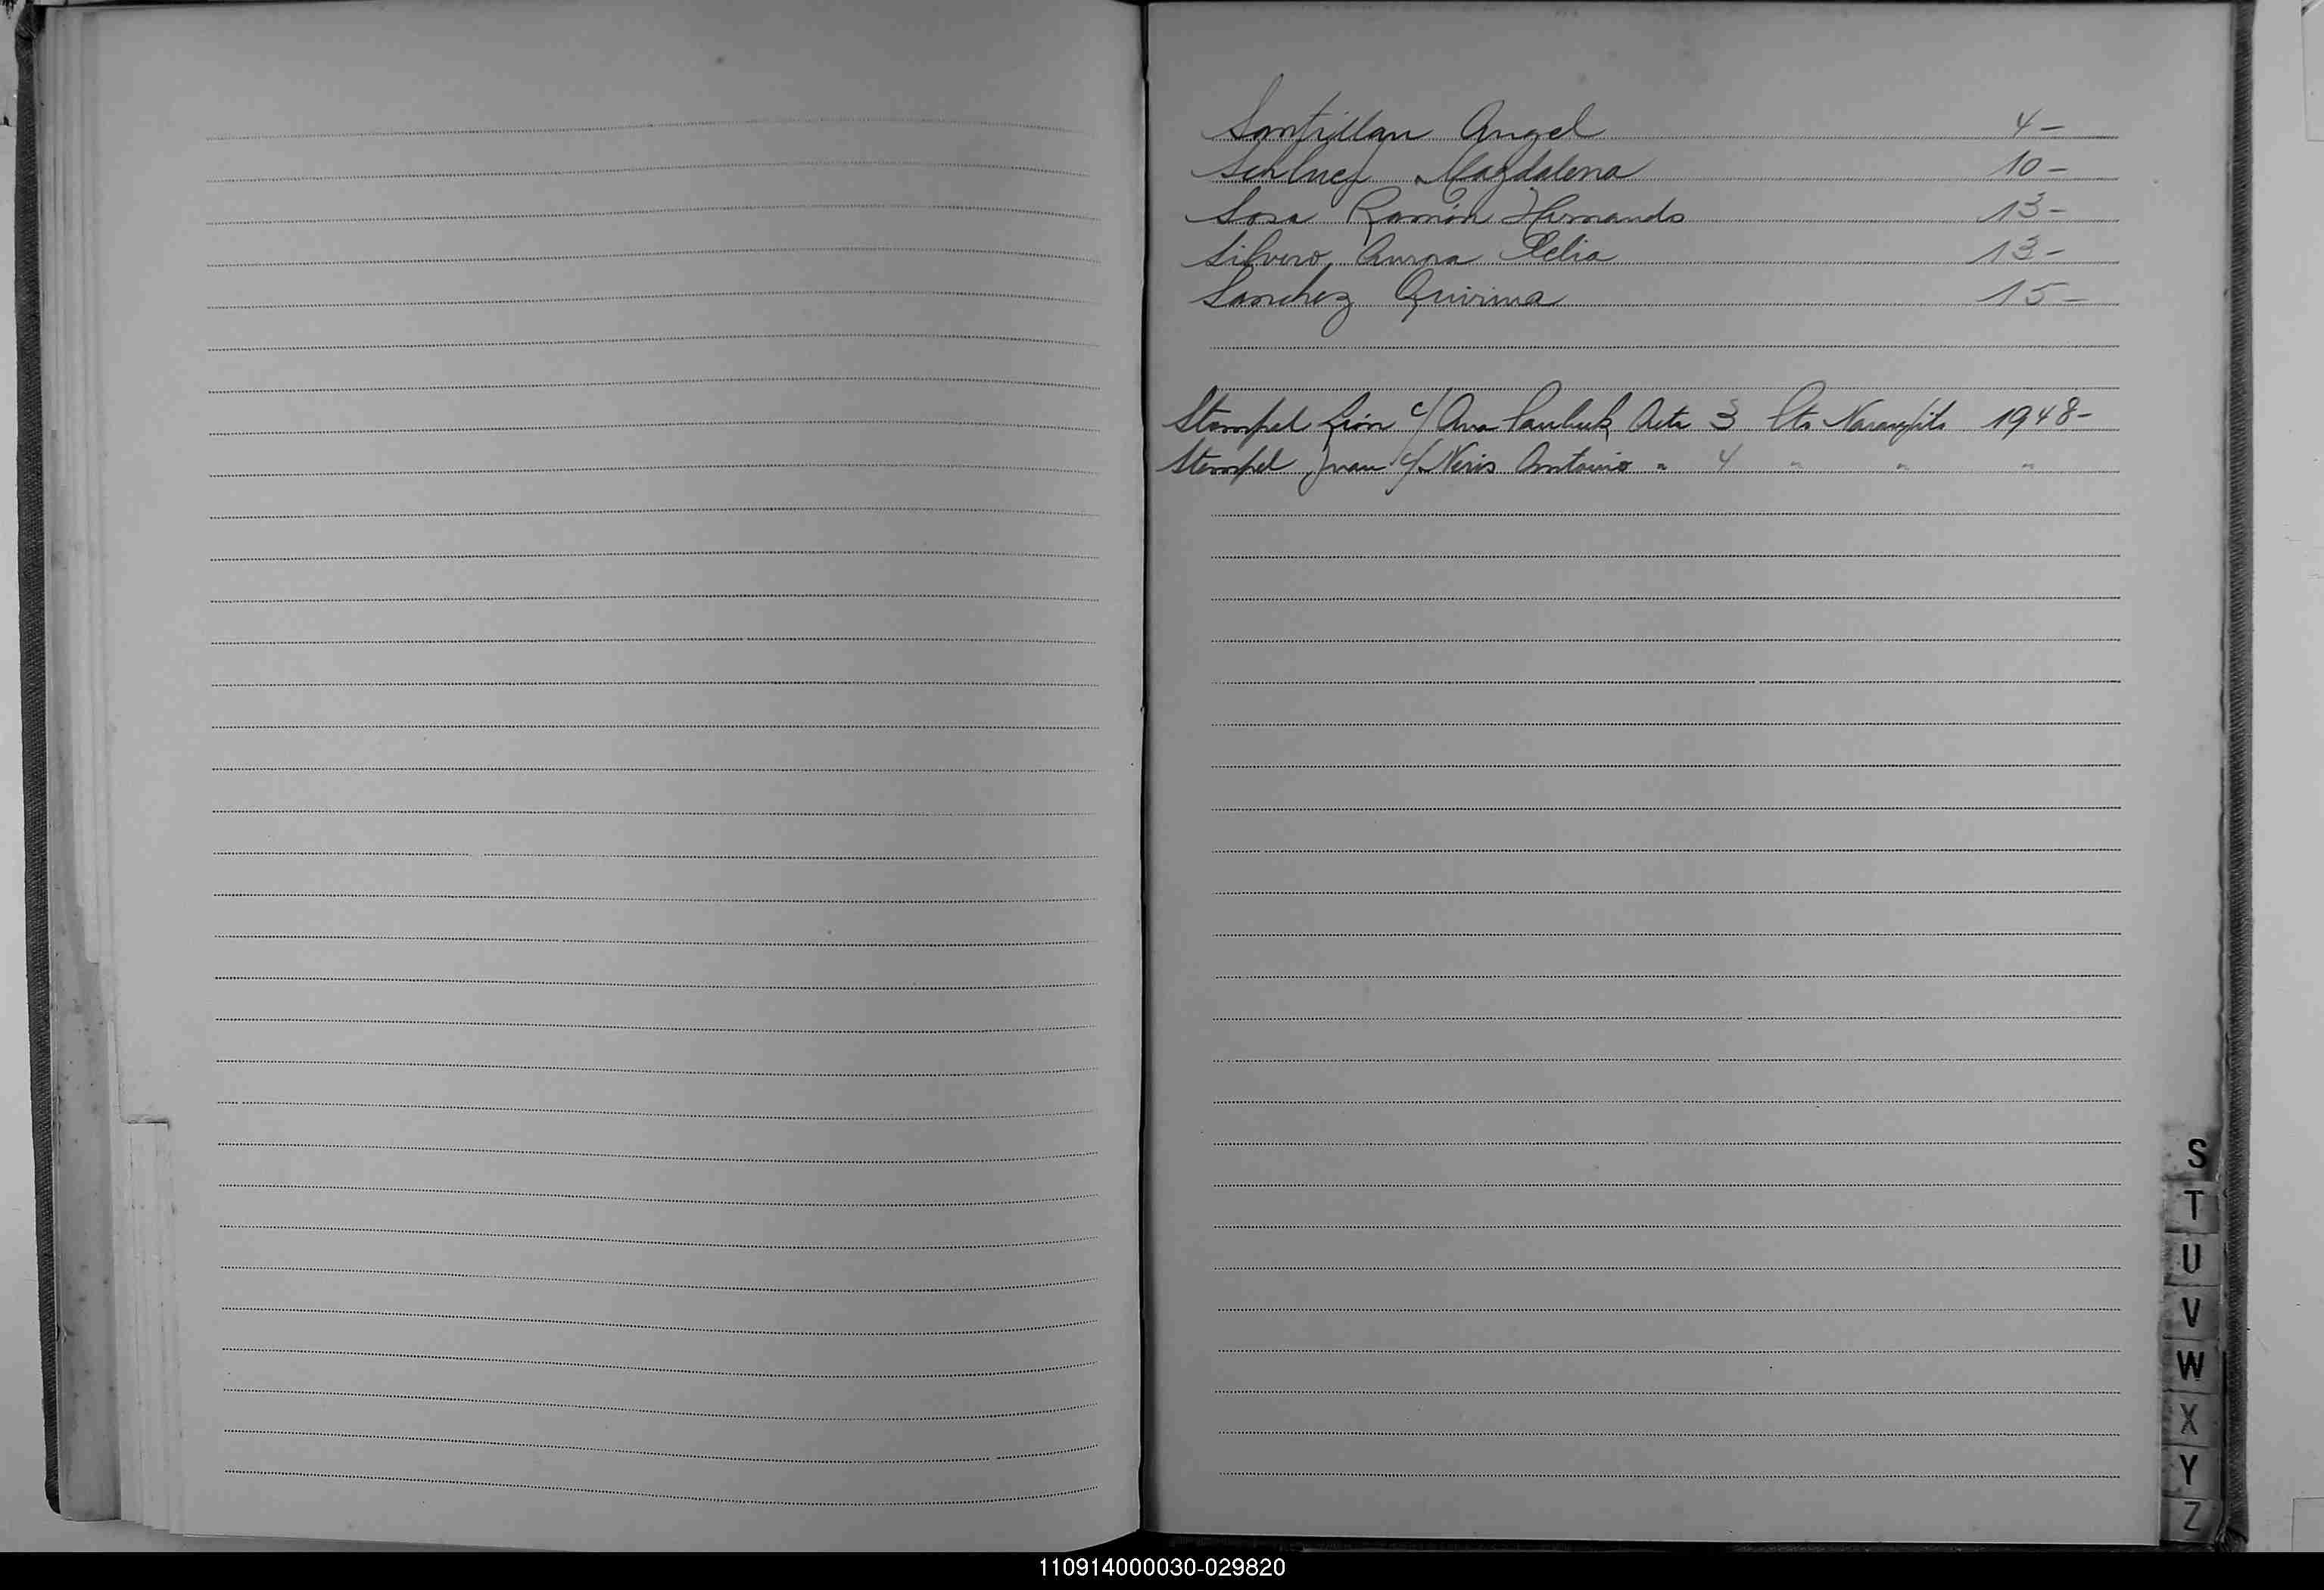 Santillan Angel 4-
Schluef Magdalena 10-
Sosa Ramón Hernando 13-
Silvero, Aurora Celia 13-
Sanchez Quirina 15-
Stempel León c/ Ana Acta 3 Cto Naranjito 1948-
Stempel Juan c/ Neris Antonio " 4 " " "
S
T
U
V
W
X
Y
Z
110914000030-029820